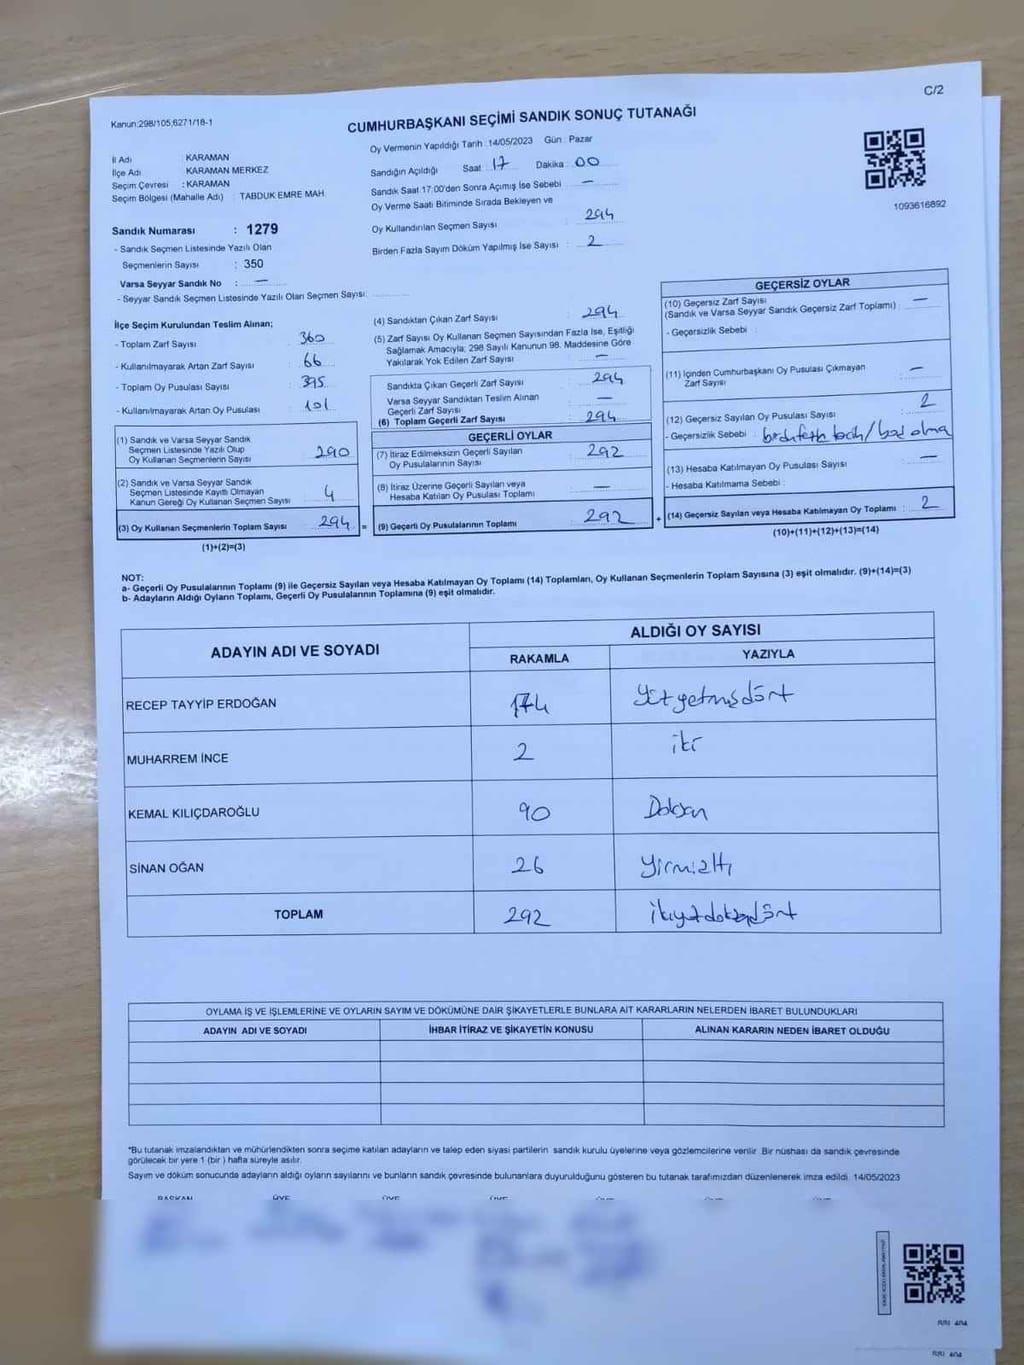 C/2
Kanun:298/105,6271/18-1
CUMHURBAŞKANI SEÇİMİ SANDIK SONUÇ TUTANAĞI
Oy Vermenin Yapıldığı Tarih :14/05/2023 Gün : Pazar
İl Adı : KARAMAN
İlçe Adı : KARAMAN MERKEZ
Seçim Çevresi : KARAMAN
Seçim Bölgesi (Mahalle Adı) : TABDUK EMRE MAH.
Sandığın Açıldığı Saat : 17 Dakika : 00
Sandık Saat 17:00'den Sonra Açımış İse Sebebi : —
Oy Verme Saati Bitiminde Sırada Bekleyen ve
Oy Kullandırılan Seçmen Sayısı : 294
Birden Fazla Sayım Döküm Yapılmış İse Sayısı : 2
1093616892
Sandık Numarası : 1279
- Sandık Seçmen Listesinde Yazılı Olan
Seçmenlerin Sayısı : 350
Varsa Seyyar Sandık No : —
- Seyyar Sandık Seçmen Listesinde Yazılı Olan Seçmen Sayısı:
İlçe Seçim Kurulundan Teslim Alınan;
- Toplam Zarf Sayısı : 360
- Kullanılmayarak Artan Zarf Sayısı : 66
- Toplam Oy Pusulası Sayısı : 395
- Kullanılmayarak Artan Oy Pusulası : 101
(1) Sandık ve Varsa Seyyar Sandık
Seçmen Listesinde Yazılı Olup
Oy Kullanan Seçmenlerin Sayısı : 290
(2) Sandık ve Varsa Seyyar Sandık
Seçmen Listesinde Kayıtlı Olmayan
Kanun Gereği Oy Kullanan Seçmen Sayısı : 4
(3) Oy Kullanan Seçmenlerin Toplam Sayısı : 294 =
(1)+(2)=(3)
(4) Sandıktan Çıkan Zarf Sayısı : 294
(5) Zarf Sayısı Oy Kullanan Seçmen Sayısından Fazla İse, Eşitliği
Sağlamak Amacıyla; 298 Sayılı Kanunun 98. Maddesine Göre
Yakılarak Yok Edilen Zarf Sayısı : —
Sandıkta Çıkan Geçerli Zarf Sayısı : 294
Varsa Seyyar Sandıktan Teslim Alınan
Geçerli Zarf Sayısı : —
(6) Toplam Geçerli Zarf Sayısı : 294
GEÇERLİ OYLAR
(7) İtiraz Edilmeksizin Geçerli Sayılan
Oy Pusulalarının Sayısı : 292
(8) İtiraz Üzerine Geçerli Sayılan veya
Hesaba Katılan Oy Pusulası Toplamı : —
(9) Geçerli Oy Pusulalarının Toplamı : 292 +
GEÇERSİZ OYLAR
(10) Geçersiz Zarf Sayısı
(Sandık ve Varsa Seyyar Sandık Geçersiz Zarf Toplamı) : —
- Geçersizlik Sebebi :
(11) İçinden Cumhurbaşkanı Oy Pusulası Çıkmayan
Zarf Sayısı : —
(12) Geçersiz Sayılan Oy Pusulası Sayısı : 2
- Geçersizlik Sebebi :
(13) Hesaba Katılmayan Oy Pusulası Sayısı : —
- Hesaba Katılmama Sebebi :
(14) Geçersiz Sayılan veya Hesaba Katılmayan Oy Toplamı : 2
(10)+(11)+(12)+(13)=(14)
NOT:
a- Geçerli Oy Pusulalarının Toplamı (9) ile Geçersiz Sayılan veya Hesaba Katılmayan Oy Toplamı (14) Toplamları, Oy Kullanan Seçmenlerin Toplam Sayısına (3) eşit olmalıdır. (9)+(14)=(3)
b- Adayların Aldığı Oyların Toplamı, Geçerli Oy Pusulalarının Toplamına (9) eşit olmalıdır.
ADAYIN ADI VE SOYADI ALDIĞI OY SAYISI
RAKAMLA YAZIYLA
RECEP TAYYİP ERDOĞAN 174 Yüzyetmişdört
MUHARREM İNCE 2 iki
KEMAL KILIÇDAROĞLU 90 Doksan
SİNAN OĞAN 26 Yirmialtı
TOPLAM 292 ikiyüzdoksandört
OYLAMA İŞ VE İŞLEMLERİNE VE OYLARIN SAYIM VE DÖKÜMÜNE DAİR ŞİKAYETLERLE BUNLARA AİT KARARLARIN NELERDEN İBARET BULUNDUKLARI
ADAYIN ADI VE SOYADI İHBAR İTİRAZ VE ŞİKAYETİN KONUSU ALINAN KARARIN NEDEN İBARET OLDUĞU
*Bu tutanak imzalandıktan ve mühürlendikten sonra seçime katılan adayların ve talep eden siyasi partilerin sandık kurulu üyelerine veya gözlemcilerine verilir. Bir nüshası da sandık çevresinde
görülecek bir yere 1 (bir ) hafta süreyle asılır.
Sayım ve döküm sonucunda adayların aldığı oyların sayılarını ve bunların sandık çevresinde bulunanlara duyurulduğunu gösteren bu tutanak tarafımızdan düzenlenerek imza edildi. 14/05/2023
BAŞKAN ÜYE ÜYE ÜYE